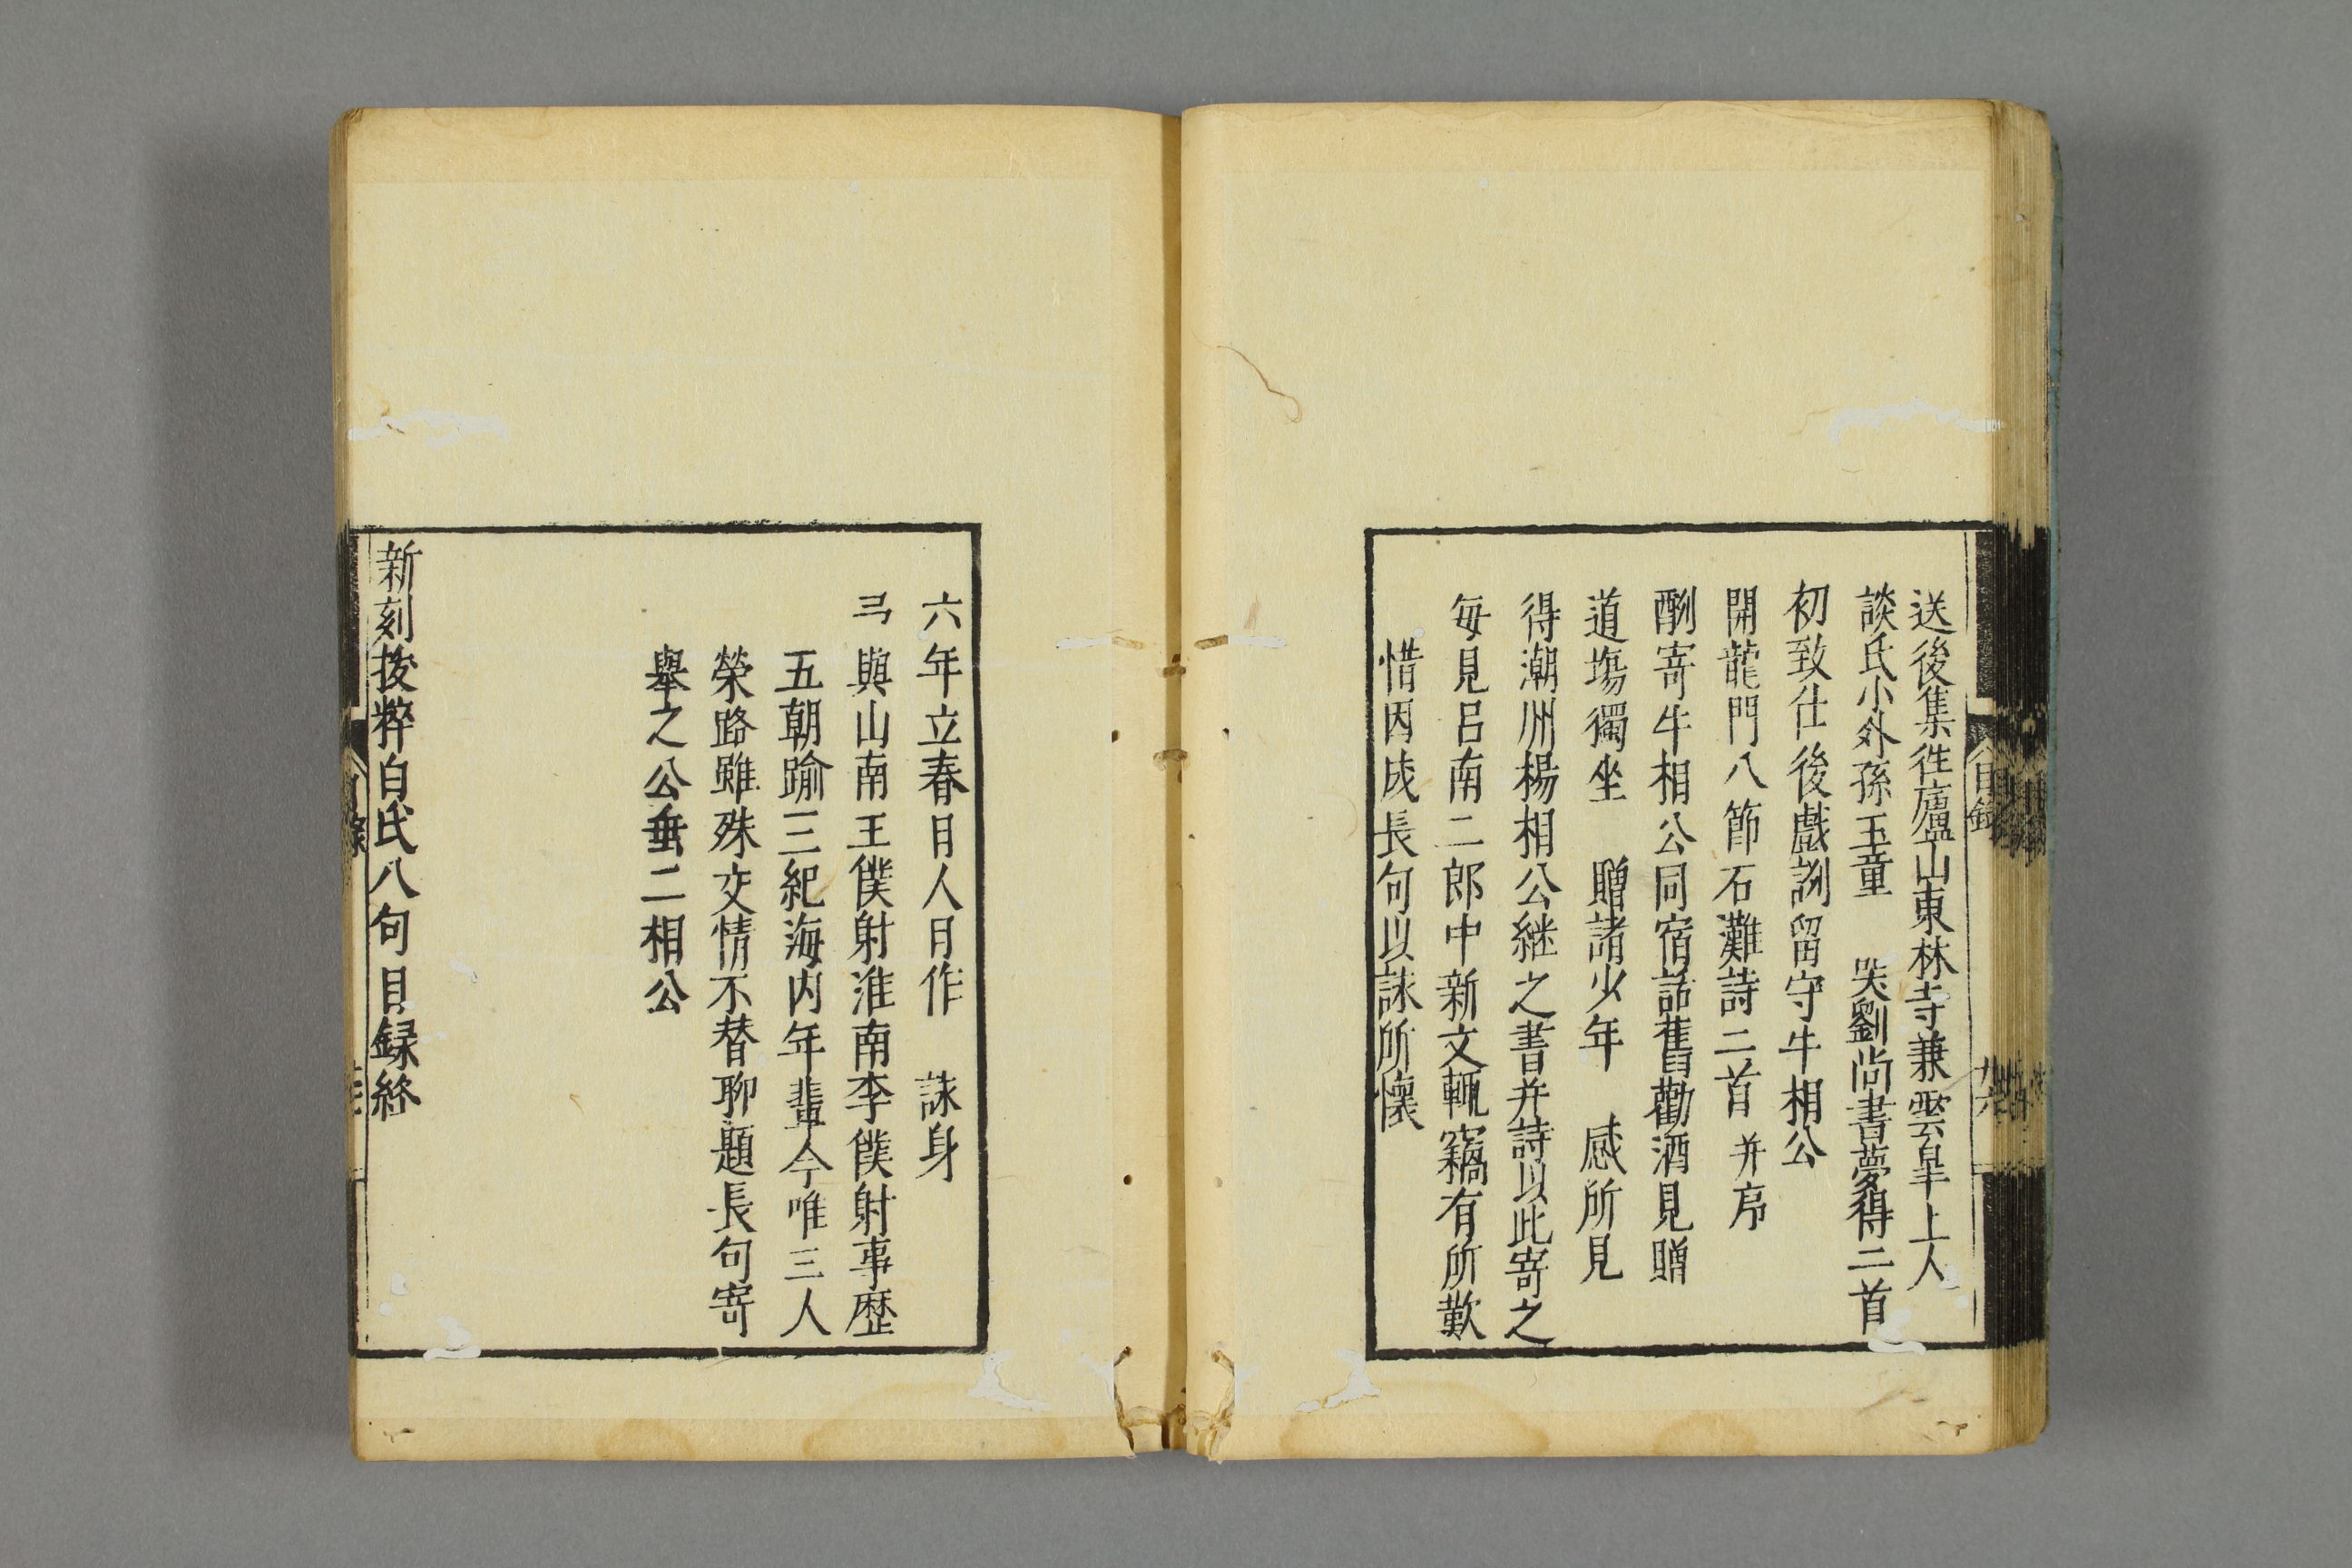 送後集徃廬山東林寺兼雲臯上人
談氏小外孫玉童　哭劉尚書夢得二首
初致仕後戲詶留守牛相公
開龍門八節石灘詩二首并序
酬寄牛相公同宿話舊勸酒見贈
道塲獨坐　贈諸少年　感所見
得潮州楊相公継之書并詩以此寄之
每見呂南二郎中新文輒竊有所歎
惜因成長句以詠所懷
目錄
六年立春日人日作　詠身
與山南王僕射淮南李僕射事歷
五朝踰三紀海内年輩今唯三人
榮路雖殊交情不替聊題長句寄
舉之公垂二相公
新刻拔粹白氏八句目録終